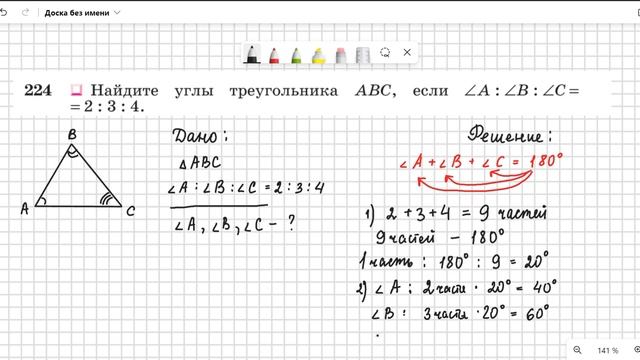 Доска без имени
224 Найдите углы треугольника ABC, если ∠A : ∠B : ∠C =
= 2 : 3 : 4.
B
A
C
Дано:
△ABC
∠A : ∠B : ∠C = 2 : 3 : 4
∠A, ∠B, ∠C - ?
Решение:
∠A + ∠B + ∠C = 180°
1) 2 + 3 + 4 = 9 частей
9 частей - 180°
1 часть : 180° : 9 = 20°
2) ∠A : 2 части · 20° = 40°
∠B : 3 части · 20° = 60°
141 %